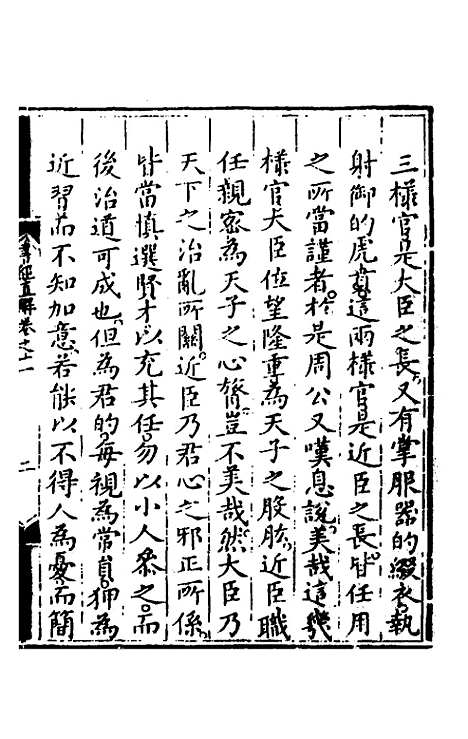 三樣官是大臣之長又有掌服器的綴衣執
射御的虎賁這兩樣官是近臣之長皆任用
之所當謹者於是周公又嘆息說美哉這幾
樣官夫大臣位望隆重為天子之股肱近臣職
任親密為天子之心膂豈不美哉然大臣乃
天下之治亂所關近臣乃君心之邪正所係
皆當慎選賢才以充其任勿以小人叅之而
後治道可成也但為君的每視為常員狎為
近習而不知加意若能以不得人為憂而簡
書經直解卷之十一
二